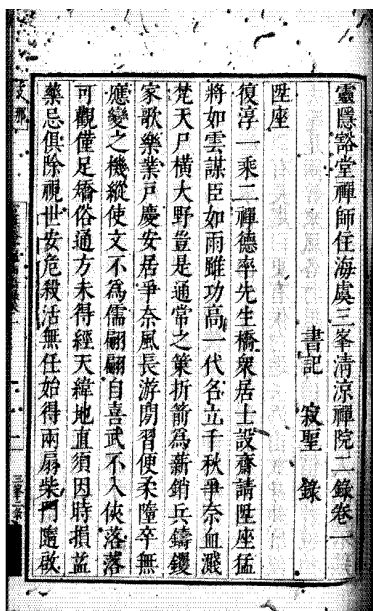 靈隱豁堂禪師住海虞三峯清涼禪院二錄卷一
書記 寂聖 錄
陞座
復淳一乘二禪德率先生橋眾居士設齋請陞座猛
將如雲謀臣如雨雖功高一代名立千秋爭奈血濺
梵天尸橫大野豈是通常之策折箭為薪銷兵鑄鑁
家歌樂業戶慶安居爭奈風長游閉習便柔墮卒無
應變之機縱使文不為儒翩翩自喜武不入俠落落
可觀僅足矯俗通方未得經天緯地直須因時損益
藥忌俱除視世安危殺活無任始得兩扇柴門隨啟
支那
三峯二錄